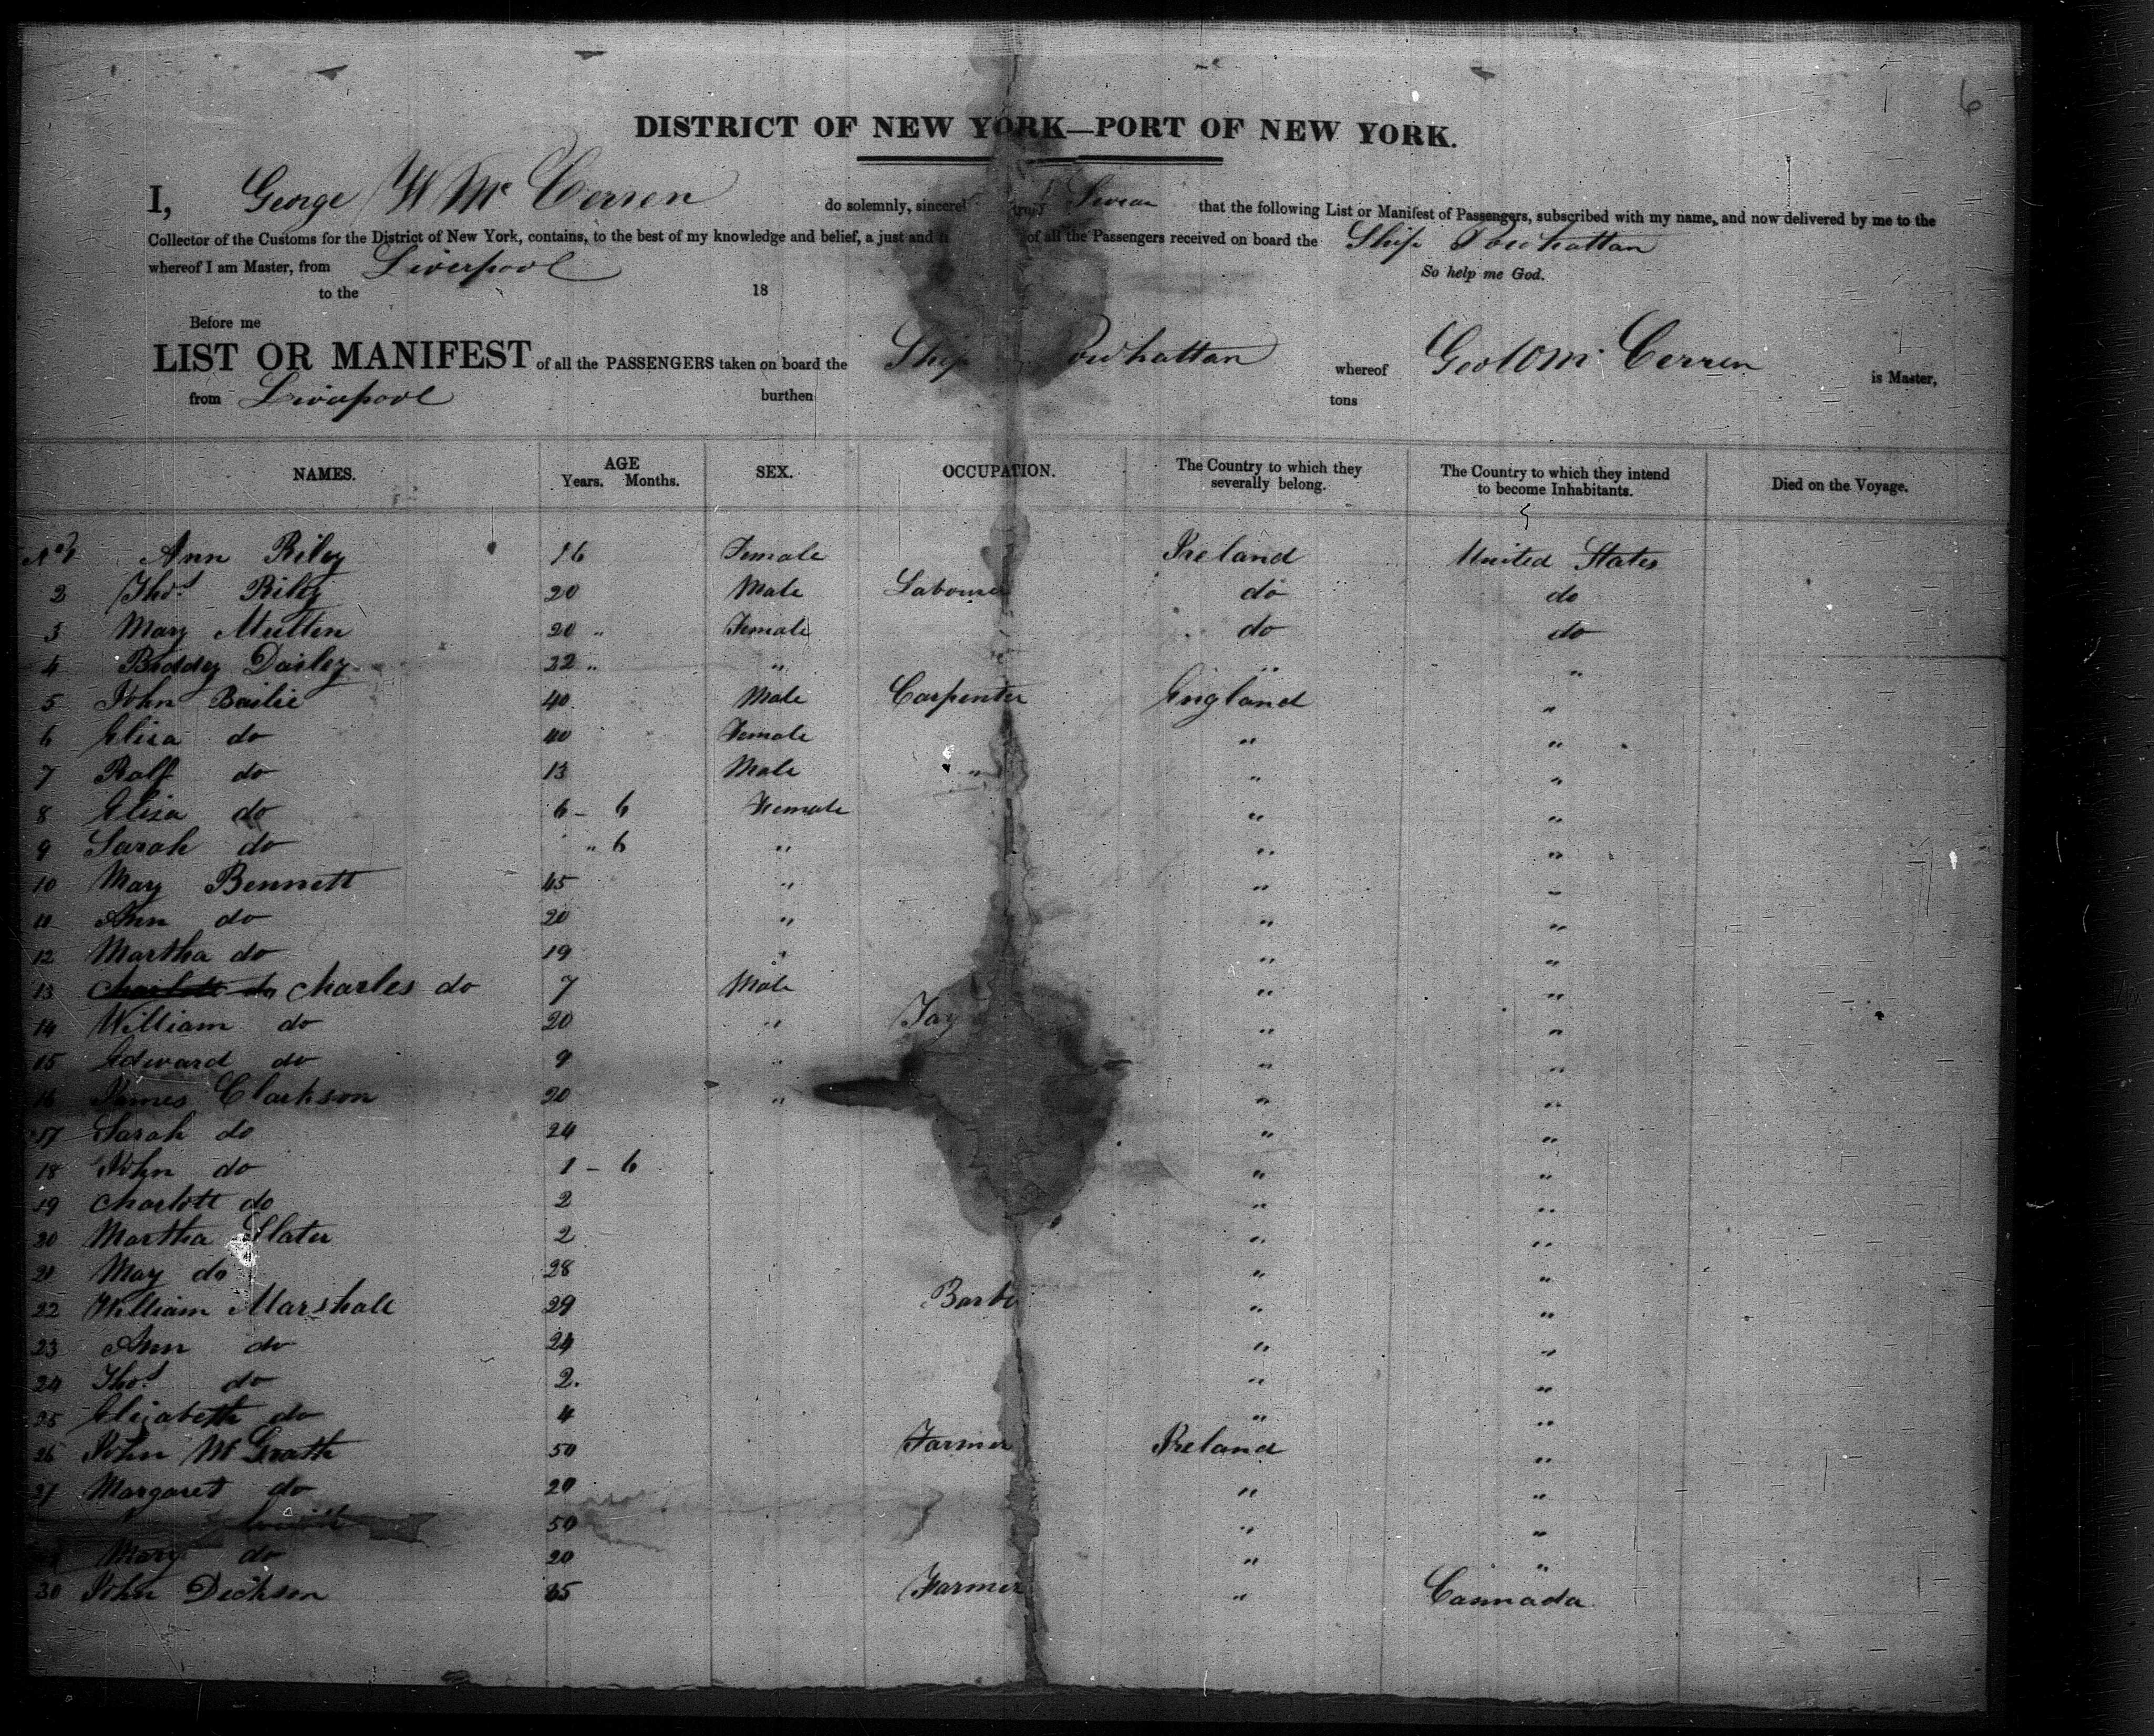 6
DISTRICT OF NEW YORK—PORT OF NEW YORK.
I, George W Mc Cerren do solemnly, sincerel truly Swear that the following List or Manifest of Passengers, subscribed with my name, and now delivered by me to the
Collector of the Customs for the District of New York, contains, to the best of my knowledge and belief, a just and t of all the Passengers received on board the Ship Powhattan
whereof I am Master, from Liverpool So help me God.
to the 18
Before me
LIST OR MANIFEST of all the PASSENGERS taken on board the Ship Powhattan whereof Geo W Mc Cerren is Master,
from Liverpool burthen tons
NAMES. AGE Years. Months. SEX. OCCUPATION. The Country to which they severally belong. The Country to which they intend to become Inhabitants. Died on the Voyage.
No 1 Ann Riley 16 Female Ireland United States
2 Thos Riley 20 Male Labourer do do
3 Mary Mullen 20 " Female do do
4 Biddy Dailey 22 " " " "
5 John Bailie 40 Male Carpenter England "
6 Elisa do 40 Female " "
7 Ralf do 13 Male " " "
8 Elisa do 6 - 6 Female " "
9 Sarah do " 6 " " "
10 Mary Bennett 45 " " "
11 Ann do 20 " " "
12 Martha do 19 " " "
13 Charlott do Charles do 7 Male " "
14 William do 20 " Tay " "
15 Edward do 9 " " "
16 James Clarkson 20 " " "
17 Sarah do 24 " "
18 John do 1 - 6 " "
19 Charlott do 2 " "
20 Martha Slater 2 " "
21 May do 28 " "
22 William Marshall 29 Barbe " "
23 Ann do 24 " "
24 Thos do 2. " "
25 Elizabeth do 4 " "
26 John McGrath 50 Farmer Ireland "
27 Margaret do 20 " "
50 " "
Mary do 20 " "
30 John Dickson 35 Farmer " Cannada